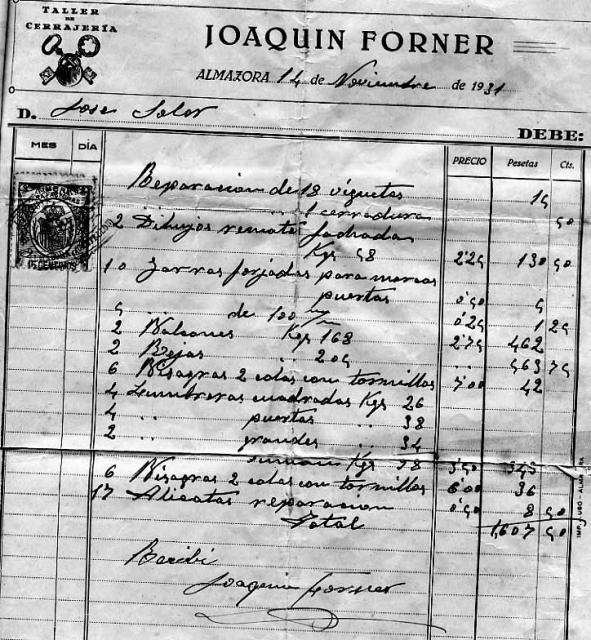 TALLER
DE
CERRAJERÍA
JOAQUIN FORNER
ALMAZORA 14 de Noviembre de 1931
D. Jose Soler
DEBE:
MES DÍA PRECIO Pesetas Cts.
Reparacion de 18 viguetas 15
" " 1 cerradura 50
2 Dibujos remate fachadas
Kgs 58 2'25 130 50
10 Zarras forjadas para marcos
puertas 0'50 5
5 de 100 m/m 0'25 1 25
2 Balcones Kgs 168 2'75 462
2 Rejas " 205 " 563 75
6 Bisagras 2 colas con tornillos 7'00 42
4 Lumbreras cuadradas Kgs 26
4 " puertas " 38
2 " grandes " 34
suman Kgs 98 3'50 343
6 Bisagras 2 colas con tornillos 6'00 36
17 Alicatas reparacion 0'50 8 50
Total 1,607 50
Recibi
Joaquin Forner
15 CENTIMOS